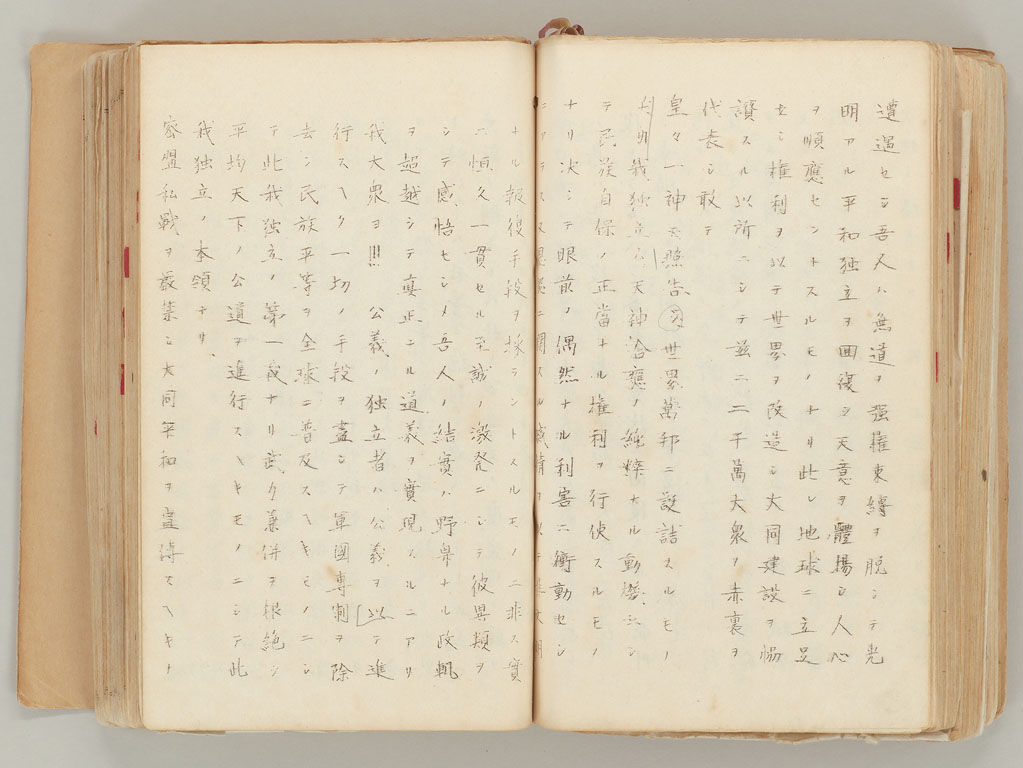 遭遇セシ吾人ハ無道ヲ強權束縛ヲ脱シテ光
明アル平和独立ヲ回復ヲ天意ヲ體揚シ人心
ヲ順應セントスルモノナリ此レ地球ニ立足
セシ権利ヲ以テ世界ヲ改造シ大同建設ヲ協
讃スル以所ニシテ茲ニ二千萬大衆ノ赤裏ヲ
代表シ敢テ
皇々一神天照告 世界萬邦ニ設詰スルモノ
我独立ハ天神洽應ノ純粹ナル動機ニシ
テ民族自保ノ正當ナル權利ヲ行使スルモノ
ナリ决シテ眼前ノ偶然ナル利害ニ衝動セシ
ナル報復手段ヲ採ラントスルモノニ非ス實
ニ恒久一貫セル至誠ノ激発ニシテ彼異類ヲ
シテ感悟セシメ吾人ノ結實ハ野卑ナル政軌
ヲ超越シテ真正ニル道義ヲ實現スルニアリ
我大衆ヨ!!! 公義ノ独立者ハ公義ヲ以テ進
行スヘク一切ノ手段ヲ盡シテ軍國専制ヲ除
去シ民族平等ヲ全球ニ普及スヘキモノニシ
テ此我独立ノ第一義ナリ武力兼併ヲ根絶シ
平均天下ノ公道ヲ進行スヘキモノニシテ此
我独立ノ本領ナリ、
密盟私戰ヲ嚴禁シ大同平和ヲ宣傳スヘキト